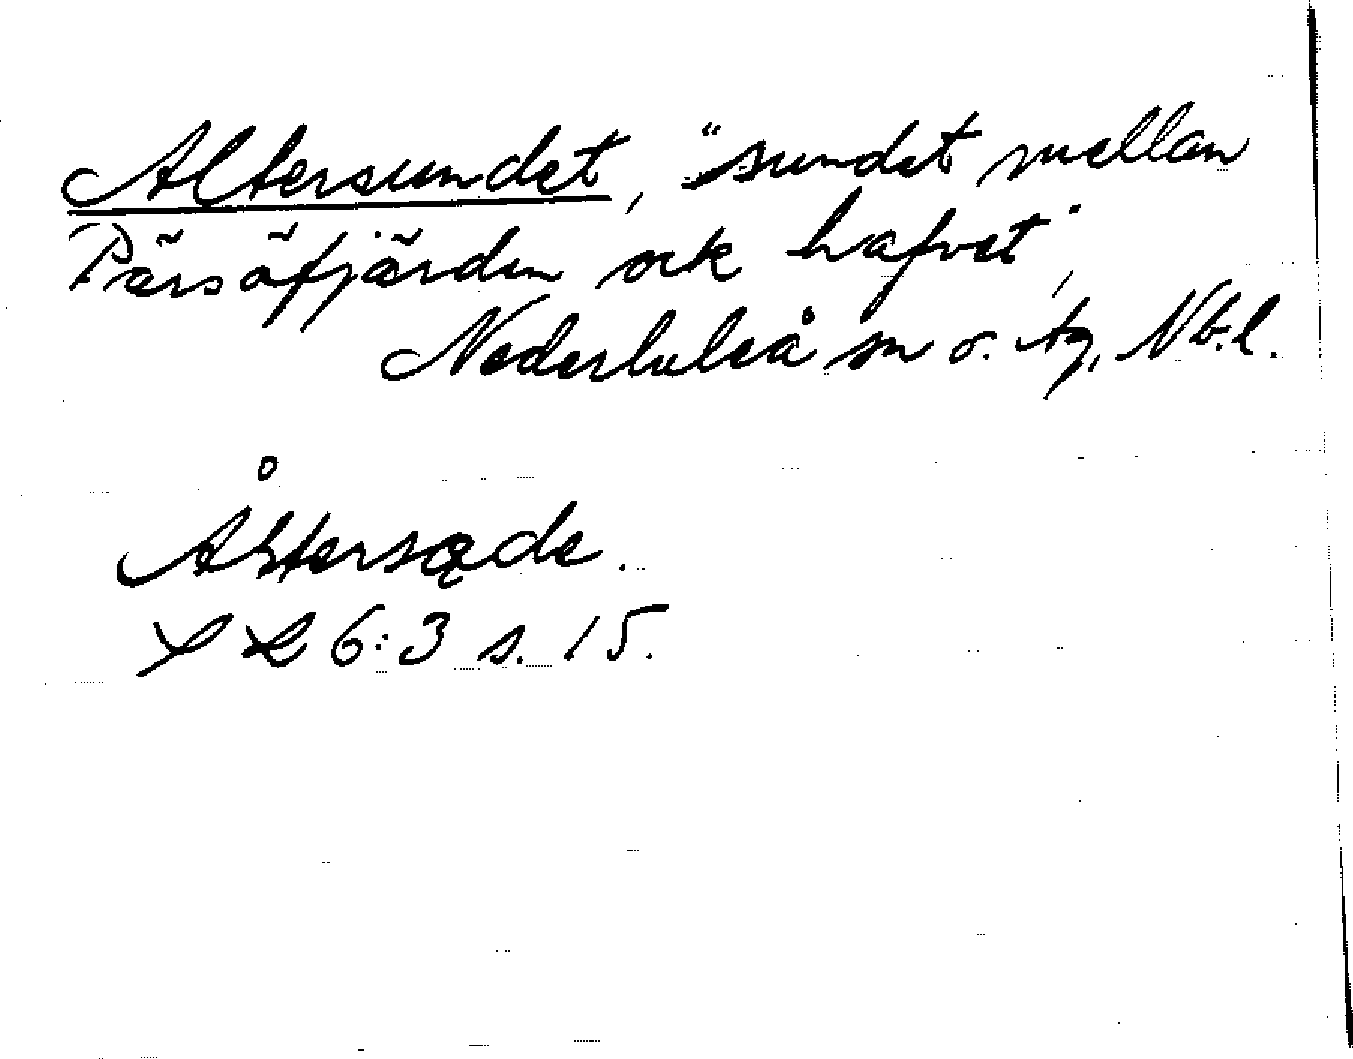 Altersundet, "sundet mellan
Pärsöfjärden ock hafvet",
Nederluleå sn o. tg, Nb.l.
Ålterso̧de.
S L 6:3 s. 15.